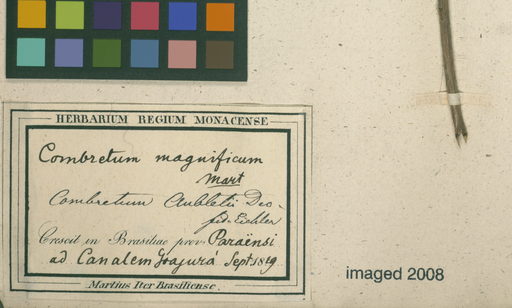 HERBARIUM REGIUM MONACENSE
Combretum magnificum
Mart
Combretum Aubletii Dec.
fid. Eichler
Crescit in Brasiliae prov. Paraënsi
ad Canalem Sept. 1819
Martius Iter Brasiliense.
imaged 2008